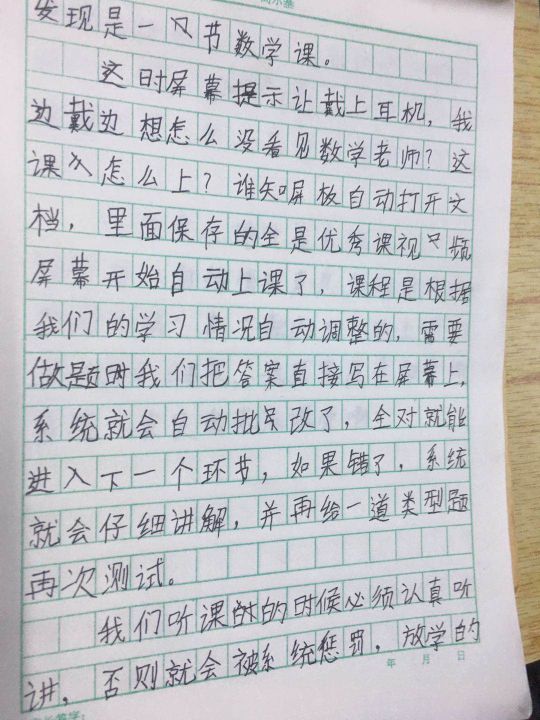 发现是一节数学课。
这时屏幕提示让戴上耳机，我
边戴边想怎么没看见数学老师？这
课怎么上？谁知屏板自动打开文
档，里面保存的全是优秀课视频
屏幕开始自动上课了，课程是根据
我们的学习情况自动调整的，需要
做题时我们把答案直接写在屏幕上，
系统就会自动批改了，全对就能
进入下一个环节，如果错了，系统
就会仔细讲解，并再给一道类型题
再次测试。
我们听课的时候必须认真听
讲，否则就会被系统惩罚，放学的
年 月 日